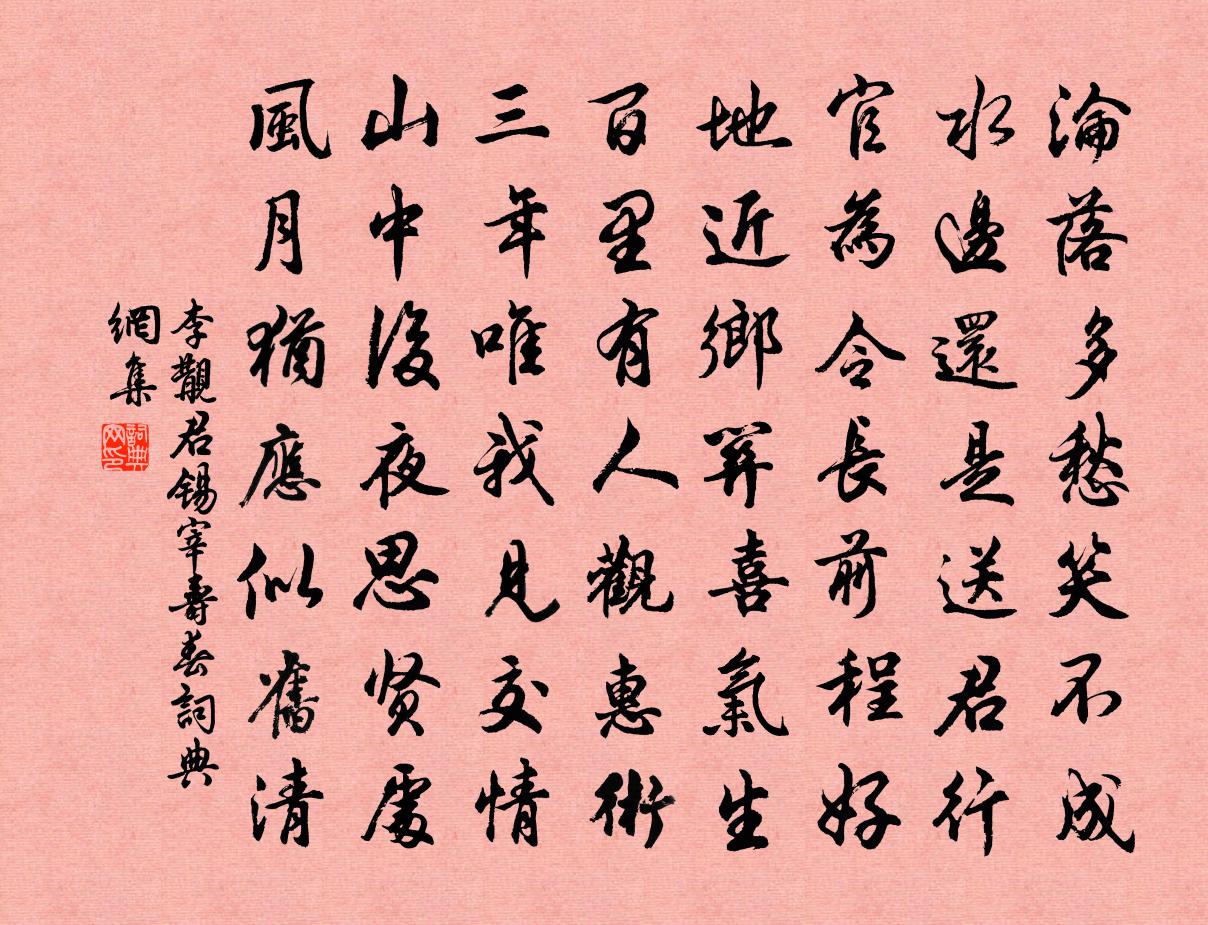 淪落多愁笑不成
水邊還是送君行
官為令長前程好
地近鄉關喜氣生
百里有人觀惠術
三年唯我見交情
山中後夜思賢處
風月猶應似舊清
李觀君錫宰壽春詞典
網集
詞典
网印